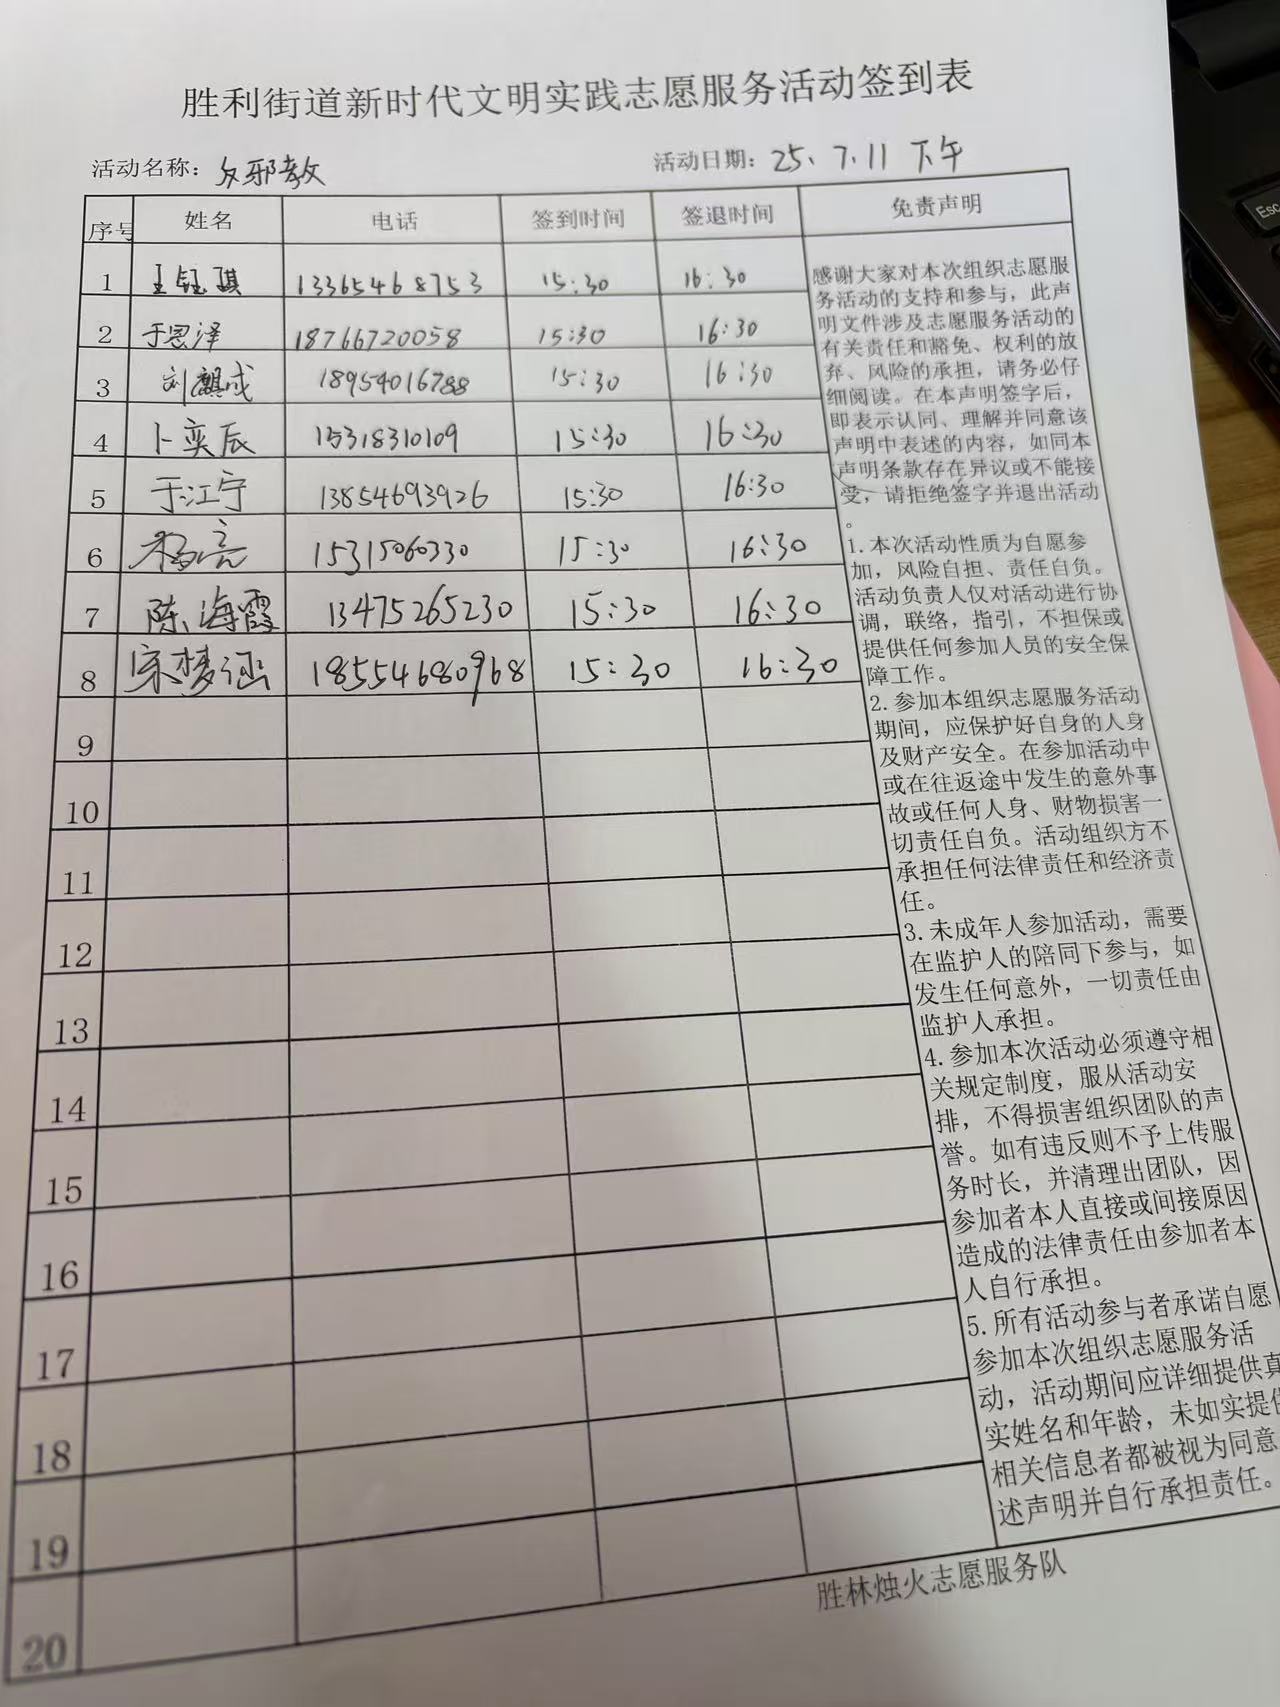 胜利街道新时代文明实践志愿服务活动签到表
活动名称：反邪教 活动日期：25.7.11 下午
序号 姓名 电话 签到时间 签退时间 免责声明
1 王钰琪 13365468753 15:30 16:30
2 于恩泽 18766720058 15:30 16:30
3 刘麒成 18954016788 15:30 16:30
4 卜奕辰 15318310109 15:30 16:30
5 于江宁 13854693926 15:30 16:30
6 杨亮 15315060330 15:30 16:30
7 陈海霞 13475265230 15:30 16:30
8 宋梦涵 18554680968 15:30 16:30
9
10
11
12
13
14
15
16
17
18
19
20
感谢大家对本次组织志愿服
务活动的支持和参与，此声
明文件涉及志愿服务活动的
有关责任和豁免、权利的放
弃、风险的承担，请务必仔
细阅读。在本声明签字后，
即表示认同、理解并同意该
声明中表述的内容，如同本
声明条款存在异议或不能接
受，请拒绝签字并退出活动
。
1.本次活动性质为自愿参
加，风险自担、责任自负。
活动负责人仅对活动进行协
调，联络，指引，不担保或
提供任何参加人员的安全保
障工作。
2.参加本组织志愿服务活动
期间，应保护好自身的人身
及财产安全。在参加活动中
或在往返途中发生的意外事
故或任何人身、财物损害一
切责任自负。活动组织方不
承担任何法律责任和经济责
任。
3.未成年人参加活动，需要
在监护人的陪同下参与，如
发生任何意外，一切责任由
监护人承担。
4.参加本次活动必须遵守相
关规定制度，服从活动安
排，不得损害组织团队的声
誉。如有违反则不予上传服
务时长，并清理出团队，因
参加者本人直接或间接原因
造成的法律责任由参加者本
人自行承担。
5.所有活动参与者承诺自愿
参加本次组织志愿服务活
动，活动期间应详细提供真
实姓名和年龄，未如实提供
相关信息者都被视为同意
述声明并自行承担责任。
胜林烛火志愿服务队
Esc